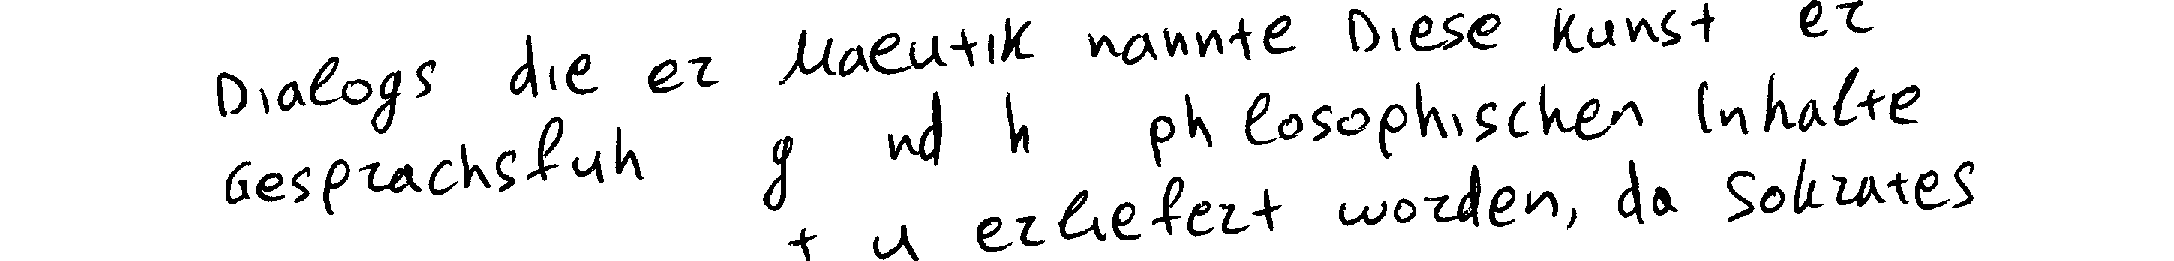 Dialogs die er Maeutik nannte Diese Kunst er
Gesprachsfuh g nd h ph losophischen Inhalte
t u erliefert worden, da Sokrates